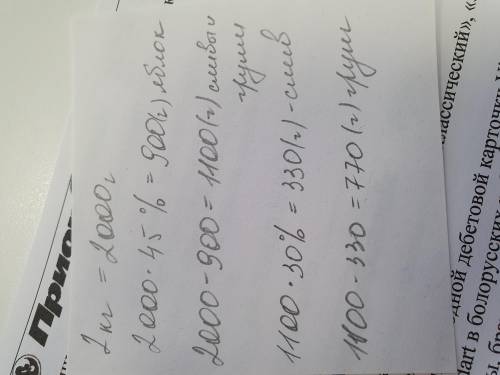 2 кг = 2000г
2000 · 45% = 900(г) яблок
2000 - 900 = 1100(г) сливы и
груши
1100 · 30% = 330(г) - слив
1100 - 330 = 770(г) груш
Приор
лассический», «
дной дебетовой карточк
mart в белорусских